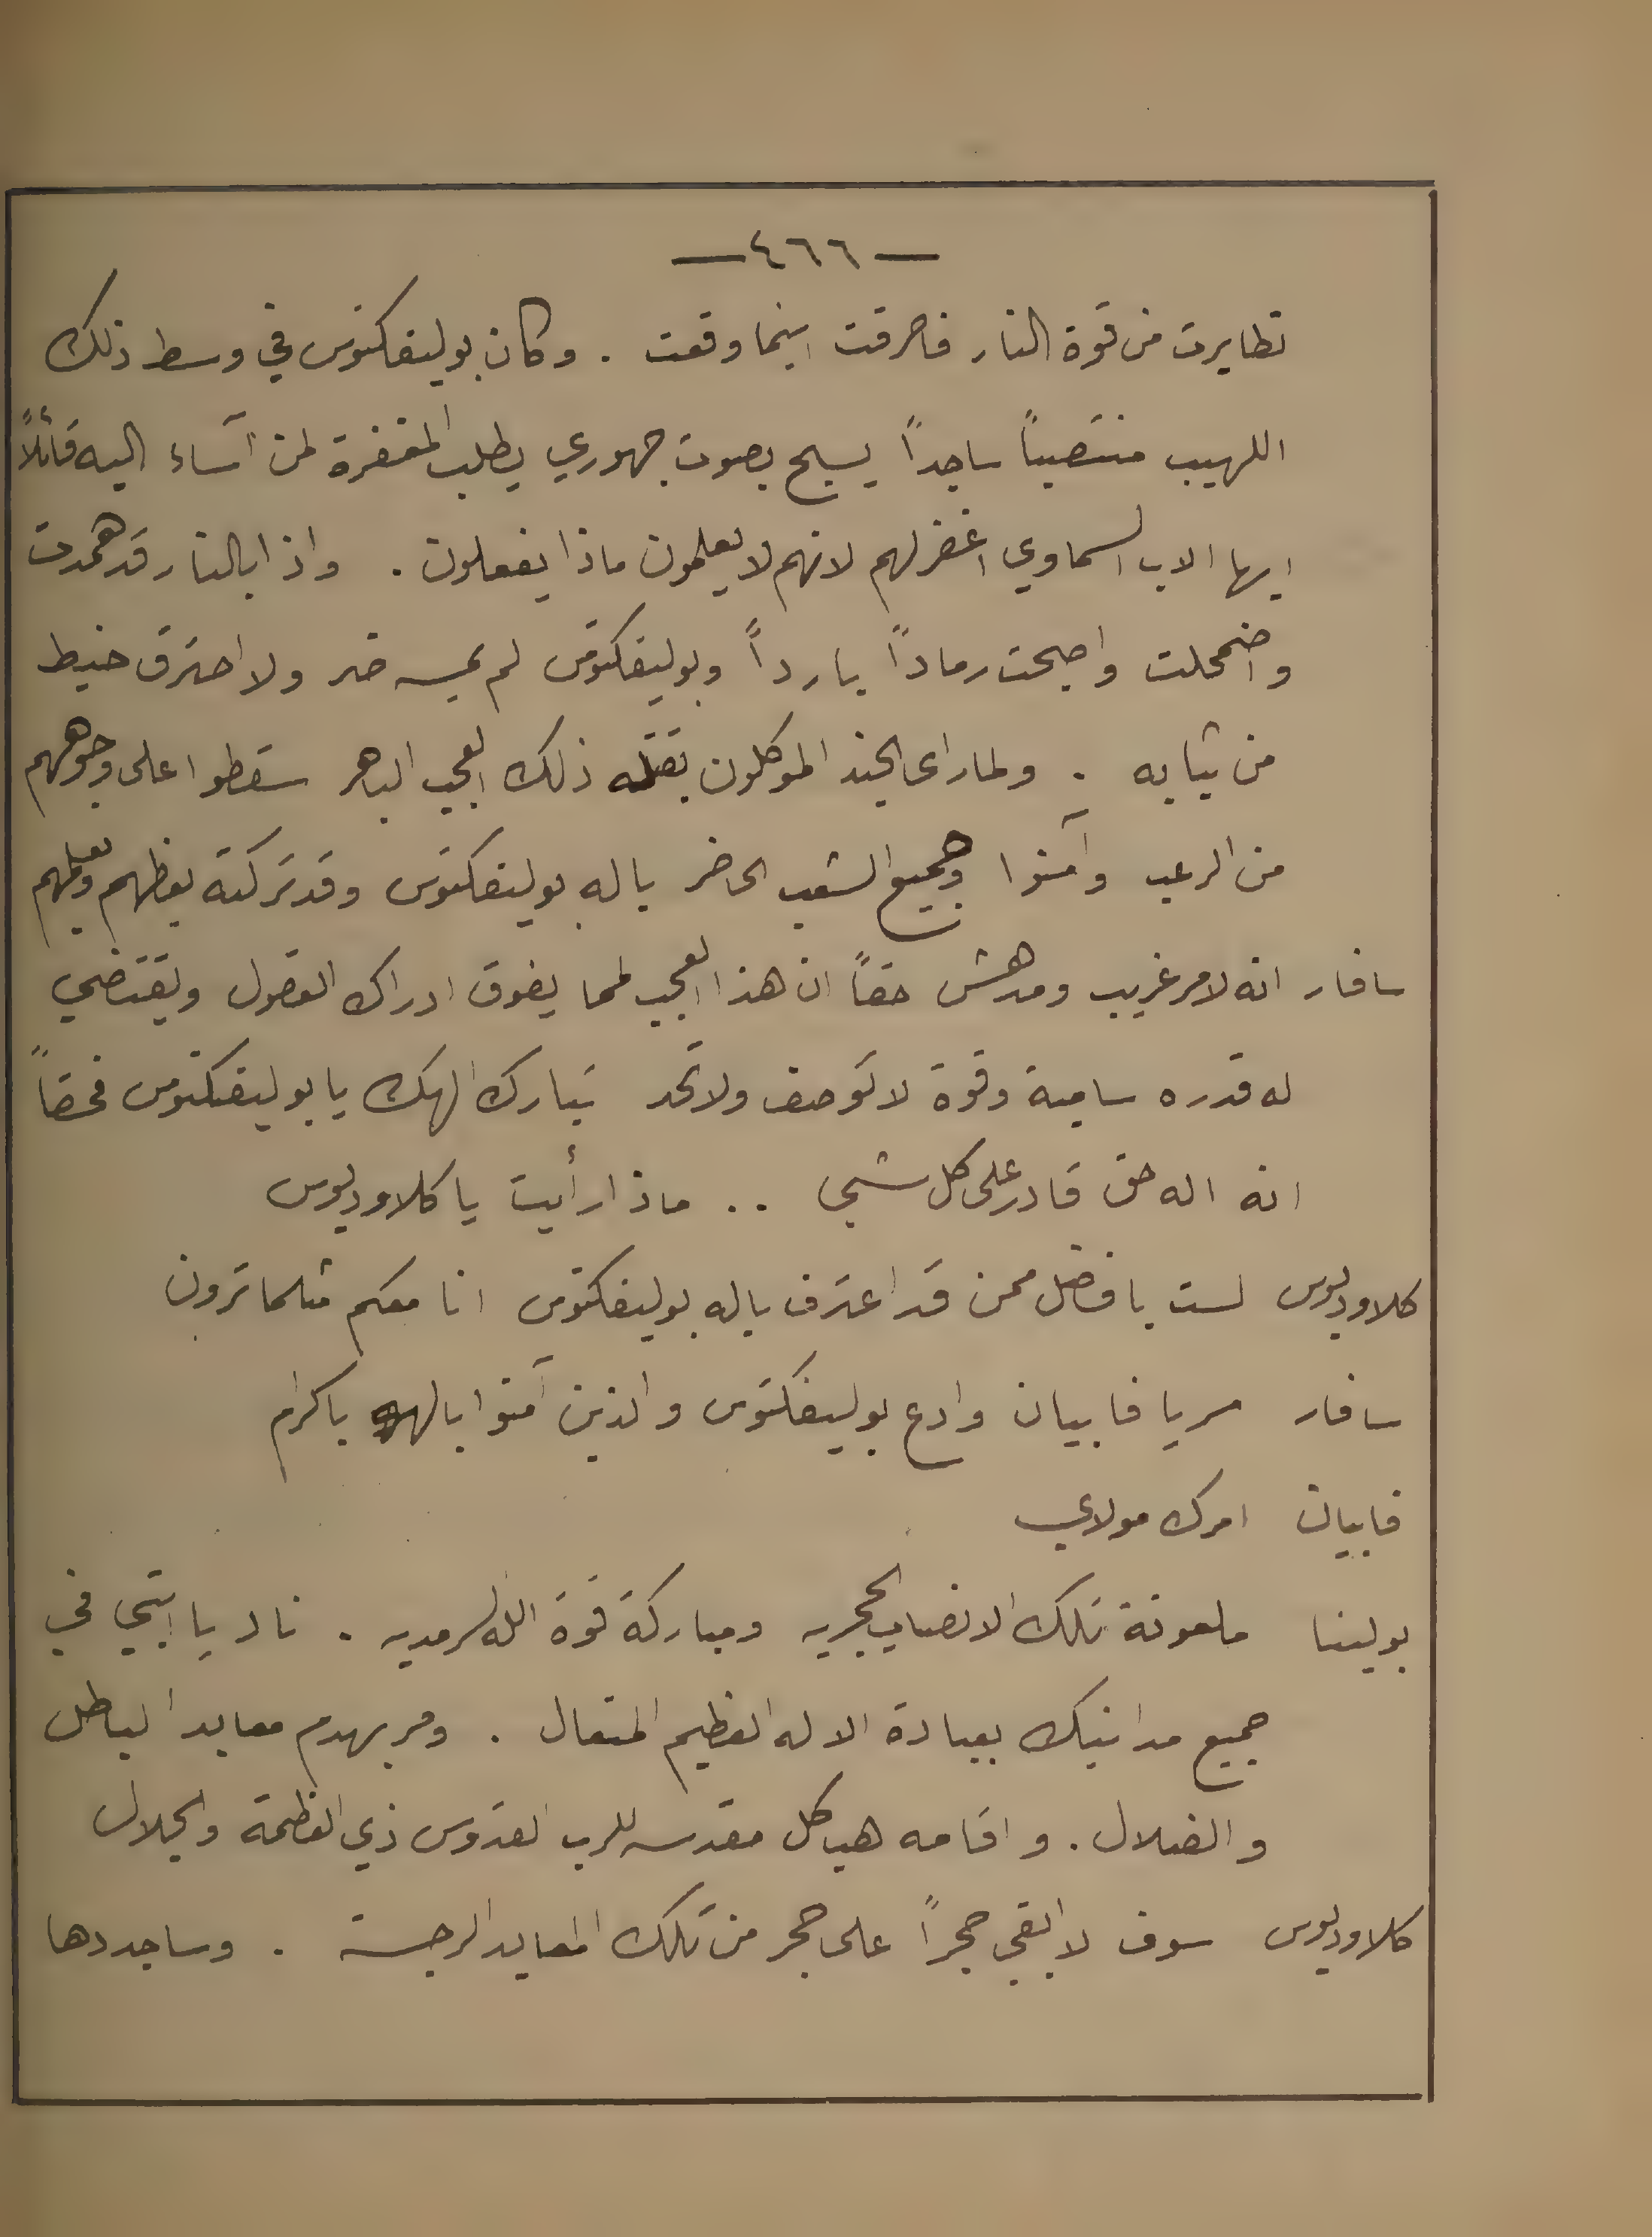 — ٤٦٦ —
تطايرت من قوة النار فاحرقت اينما وقعت . وكان بوليفكتوس في وسط ذلك
اللهيب منتصباً ساجداً يسبح بصوت جهوري يطلب المغفرة لمن أساء اليه قائلاً
ايها الاب السماوي اغفر لهم لانهم لا يعلمون ماذا يفعلون . واذا بالنار قد همدت
واضمحلت واصبحت رماداً بارداً وبوليفكتوس لم يمسه ضر ولا احترق خيط
من ثيابه . ولما راى الجند الموكلون بقتله ذلك العجب الباهر سقطوا على وجوههم
من الرعب وآمنوا وجميع الشعب الحاضر باله بوليفكتوس وقد تركته يعظهم ويعلمهم
سافار انه لامر غريب ومدهش حقاً ان هذا العجب لمما يفوق ادراك العقول ويقتضي
له قدره سامية وقوة لا توصف ولا تحد تبارك الهك يا بوليفكتوس فحقاً
انه اله حق قادر على كل شي .. ماذا رأيت يا كلاوديوس
كلاوديوس لست بافضل ممن قد اعترف باله بوليفكتوس انا معكم مثلما ترون
سافار سر يا فابيان وادع بوليفكتوس والذين آمنوا بالهه باكرام
فابيان امرك مولاي
بولينا ملعونة تلك الانصاب الحجريه ومباركة قوة الله السرمديه . ناد يا ابتي في
جميع مداينك بعبادة الاله العظيم المتعال . ومر بهدم معابد الباطل
والضلال . واقامه هياكل مقدسه للرب القدوس ذي العظمة والجلال
كلاوديوس سوف لا ابقي حجراً على حجر من تلك المعابد الرجسة . وساجددها